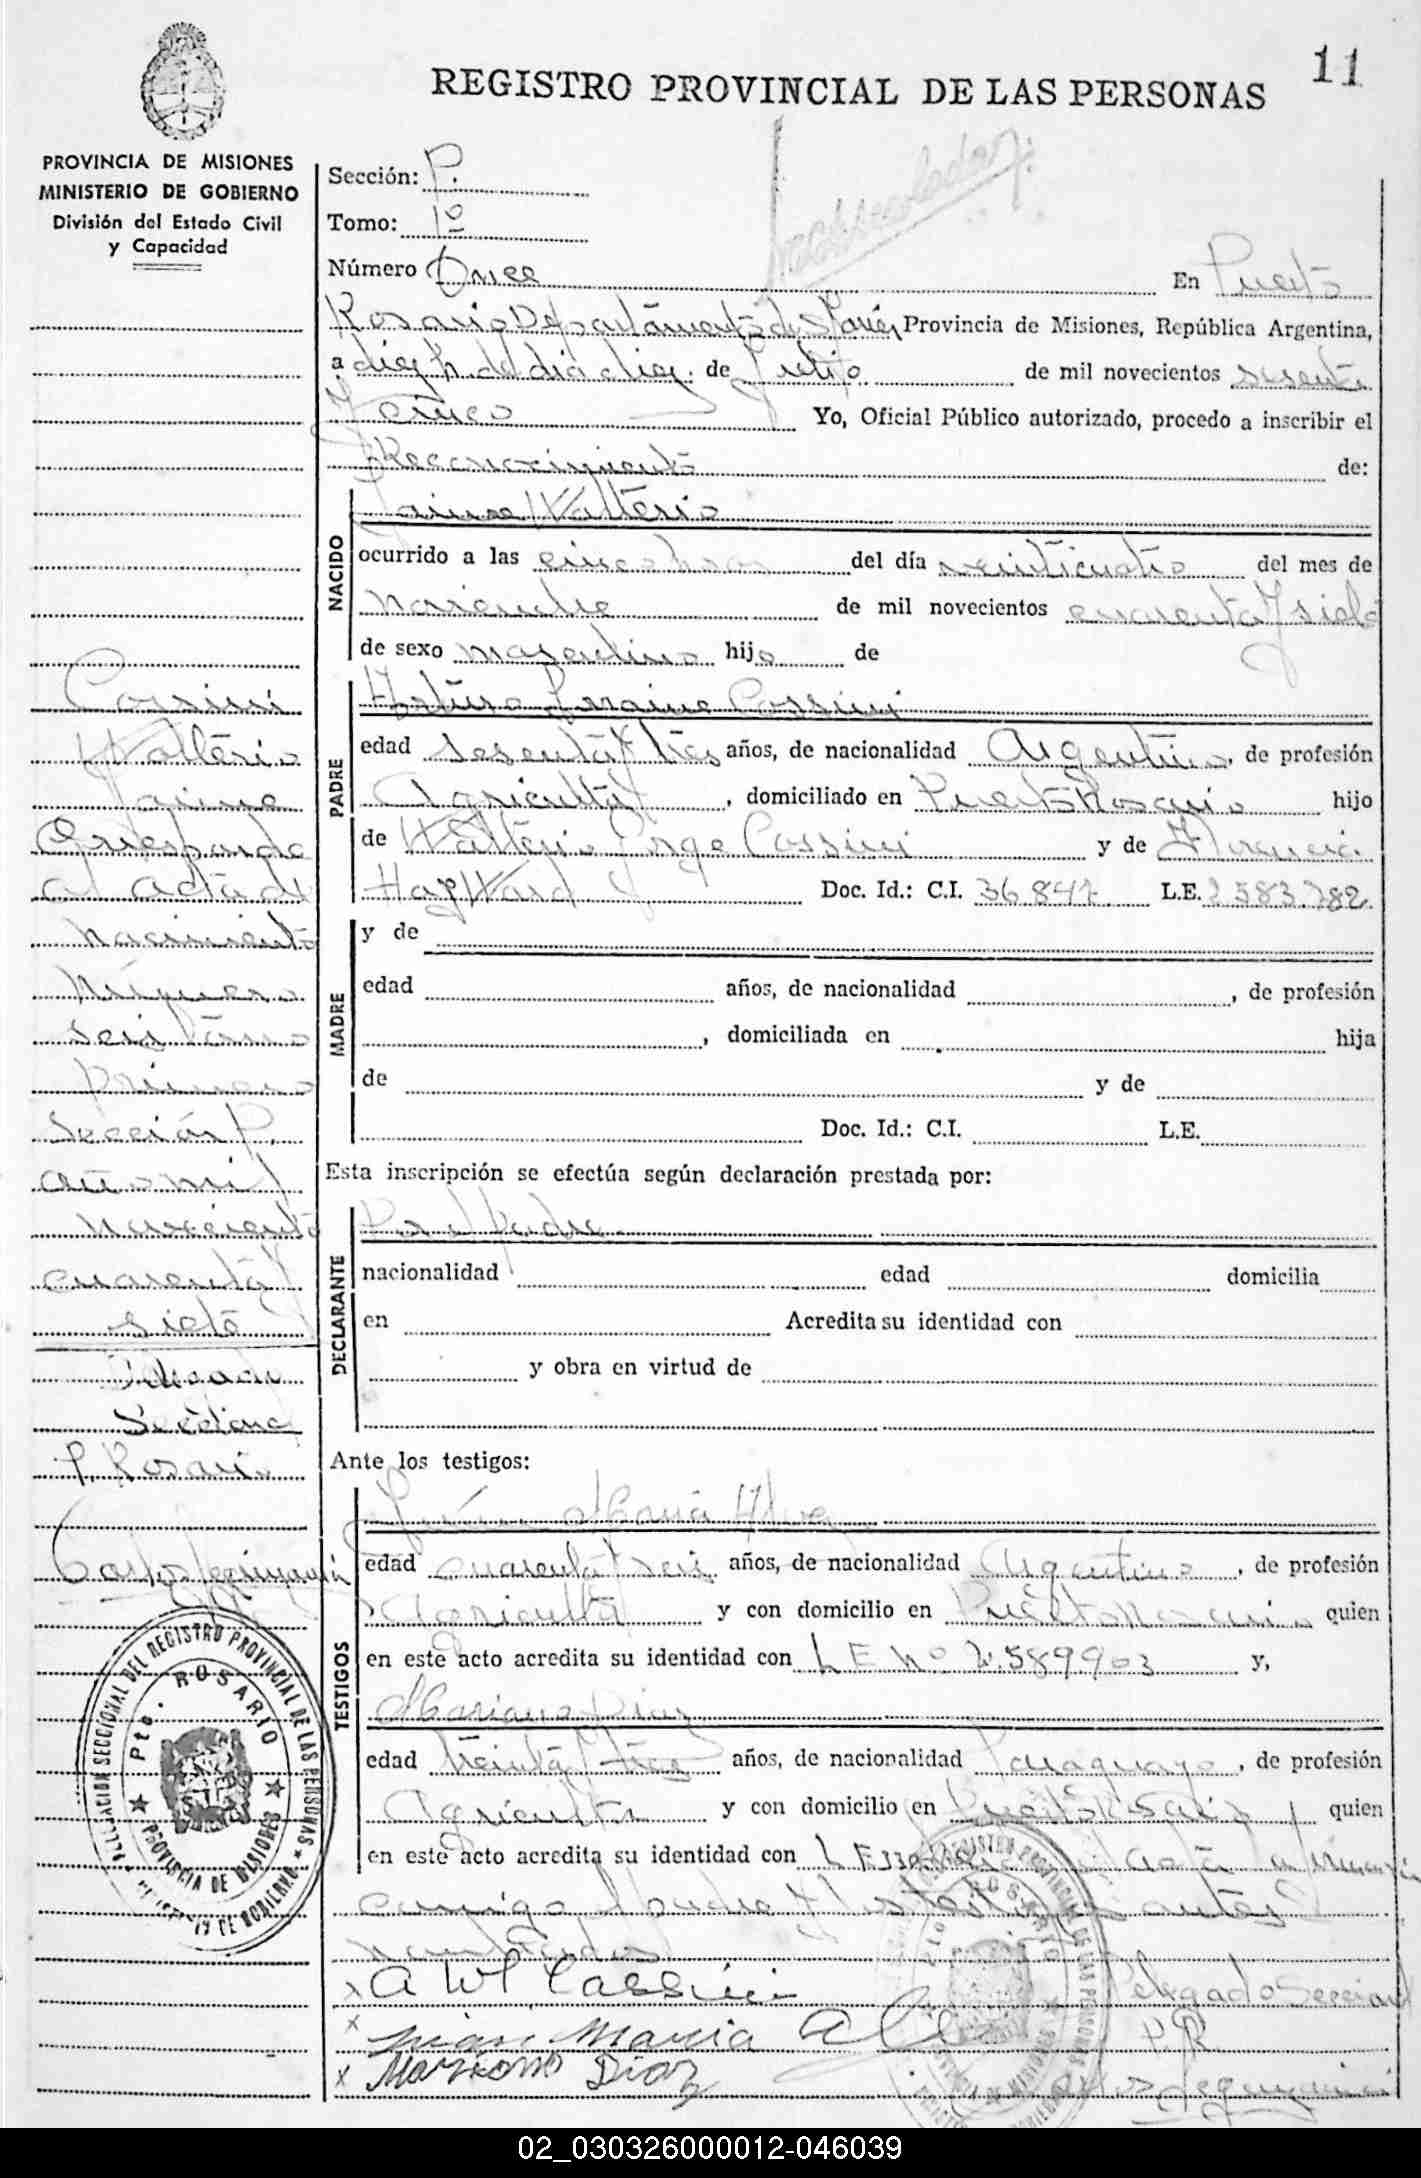 11
REGISTRO PROVINCIAL DE LAS PERSONAS
PROVINCIA DE MISIONES
MINISTERIO DE GOBIERNO
División del Estado Civil
y Capacidad
Cassini
Walterio
Jaime
Corresponde
al acta de
nacimiento
número
seis tomo
primero
Sección P.
año mil
novecientos
cuarenta y
siete
Delegado
Seccional
P. Rosario
DELEGACION SECCIONAL DEL REGISTRO PROVINCIAL DE LAS PERSONAS
Pto. ROSARIO
PROVINCIA DE MISIONES
MINISTERIO DE GOBIERNO
Sección: P.
Tomo: 1º
Número Once En Puerto
Rosario Departamento de Provincia de Misiones, República Argentina,
a diez h. del día diez de Julio de mil novecientos sesenta
y cinco Yo, Oficial Público autorizado, procedo a inscribir el
Reconocimiento de:
NACIDO
Jaime Walterio
ocurrido a las cinco horas del día veinticuatro del mes de
noviembre de mil novecientos cuarenta y siete
de sexo masculino hijo de
PADRE
Arturo Cassini
edad sesenta y tres años, de nacionalidad Argentino, de profesión
Agricultor, domiciliado en Puerto Rosario hijo
de Walterio Jorge Cassini y de Florencia
HayWard Doc. Id.: C.I. 36.847 L.E. 2583.782
MADRE
y de
edad años, de nacionalidad , de profesión
, domiciliada en hija
de y de
Doc. Id.: C.I. L.E.
Esta inscripción se efectúa según declaración prestada por:
DECLARANTE
Por el padre
nacionalidad edad domicilia
en Acredita su identidad con
y obra en virtud de
Ante los testigos:
TESTIGOS
Maria
edad cuarenta y seis años, de nacionalidad Argentino, de profesión
Agricultor y con domicilio en Puerto Rosario quien
en este acto acredita su identidad con L E Nº 2.589903 y,
Mariano Diaz
edad treinta y tres años, de nacionalidad Paraguayo, de profesión
Agricultor y con domicilio en Puerto Rosario quien
en este acto acredita su identidad con L E acta
conmigo el padre y los testigos antes
nombrados
x A W Cassini
x Juan Maria A
x Mariano Diaz
Delegado Seccional
P. R
02_030326000012-046039